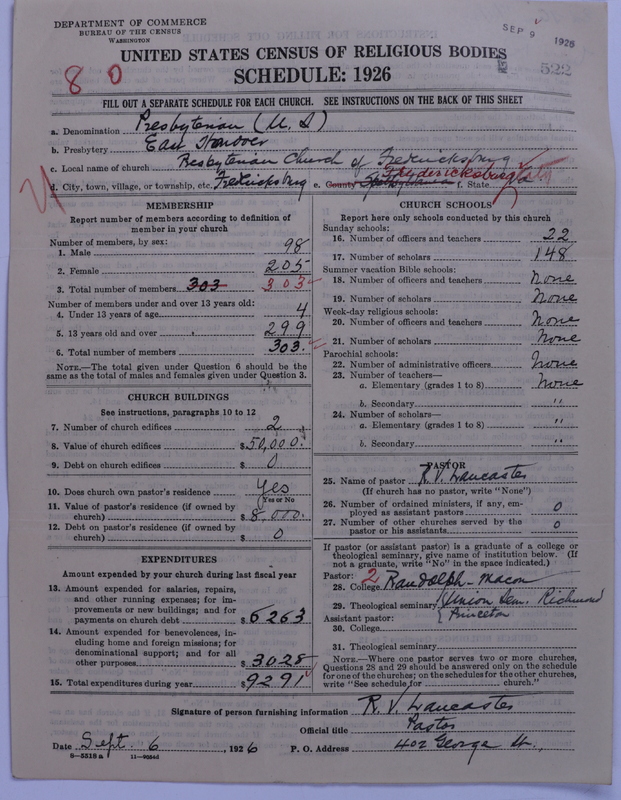 DEPARTMENT OF COMMERCE
BUREAU OF THE CENSUS
WASHINGTON
SEP 9 1926
522
8 0
UNITED STATES CENSUS OF RELIGIOUS BODIES
SCHEDULE: 1926
FILL OUT A SEPARATE SCHEDULE FOR EACH CHURCH. SEE INSTRUCTIONS ON THE BACK OF THIS SHEET
a. Denomination Presbyterian (U. S)
b. Presbytery East Hanover
c. Local name of church Presbyterian Church of Fredericksburg
d. City, town, village, or township, etc. Fredericksburg e. County Spotsylvania Fredericksburg f. State Va
MEMBERSHIP
Report number of members according to definition of
member in your church
Number of members, by sex:
1. Male 98
2. Female 205
3. Total number of members 303 303
Number of members under and over 13 years old:
4. Under 13 years of age 4
5. 13 years old and over 299
6. Total number of members 303.
NOTE.—The total given under Question 6 should be
same as the total of males and females given under Question 3.
CHURCH BUILDINGS
See instructions, paragraphs 10 to 12
7. Number of church edifices 2
8. Value of church edifices $50,000.
9. Debt on church edifices $ 0
10. Does church own pastor's residence Yes
(Yes or No)
11. Value of pastor's residence (if owned by
church) $8,000.
12. Debt on pastor's residence (if owned by
church) $ 0
EXPENDITURES
Amount expended by your church during last fiscal year
13. Amount expended for salaries, repairs,
and other running expenses; for im-
provements or new buildings; and for
payments on church debt $6263
14. Amount expended for benevolences, in-
cluding home and foreign missions; for
denominational support; and for all
other purposes $3028
15. Total expenditures during year $9291
CHURCH SCHOOLS
Report here only schools conducted by this church
Sunday schools:
16. Number of officers and teachers 22
17. Number of scholars 148
Summer vacation Bible schools:
18. Number of officers and teachers None
19. Number of scholars None
Week-day religious schools:
20. Number of officers and teachers None
21. Number of scholars None
Parochial schools:
22. Number of administrative officers None
23. Number of teachers—
a. Elementary (grades 1 to 8) None
b. Secondary "
24. Number of scholars—
a. Elementary (grades 1 to 8) "
b. Secondary "
PASTOR
25. Name of pastor R. V. Lancaster
(If church has no pastor, write "None")
26. Number of ordained ministers, if any, em-
ployed as assistant pastors 0
27. Number of other churches served by the
pastor or his assistants 0
If pastor (or assistant pastor) is a graduate of a college or
theological seminary, give name of institution below. (If
not a graduate, write "No" in the space indicated.)
Pastor: 2
28. College Randolph-Macon
29. Theological seminary Union Sem. Richmond
Princeton
Assistant pastor:
30. College
31. Theological seminary
NOTE.—Where one pastor serves two or more churches,
Questions 28 and 29 should be answered only on the schedule
for one of the churches; on the schedules for the other churches,
write "See schedule for church."
Signature of person furnishing information R. V. Lancaster
Official title Pastor
Date Sept. 6, 1926 P. O. Address 402 George St.,
8-5518a 11-9054d